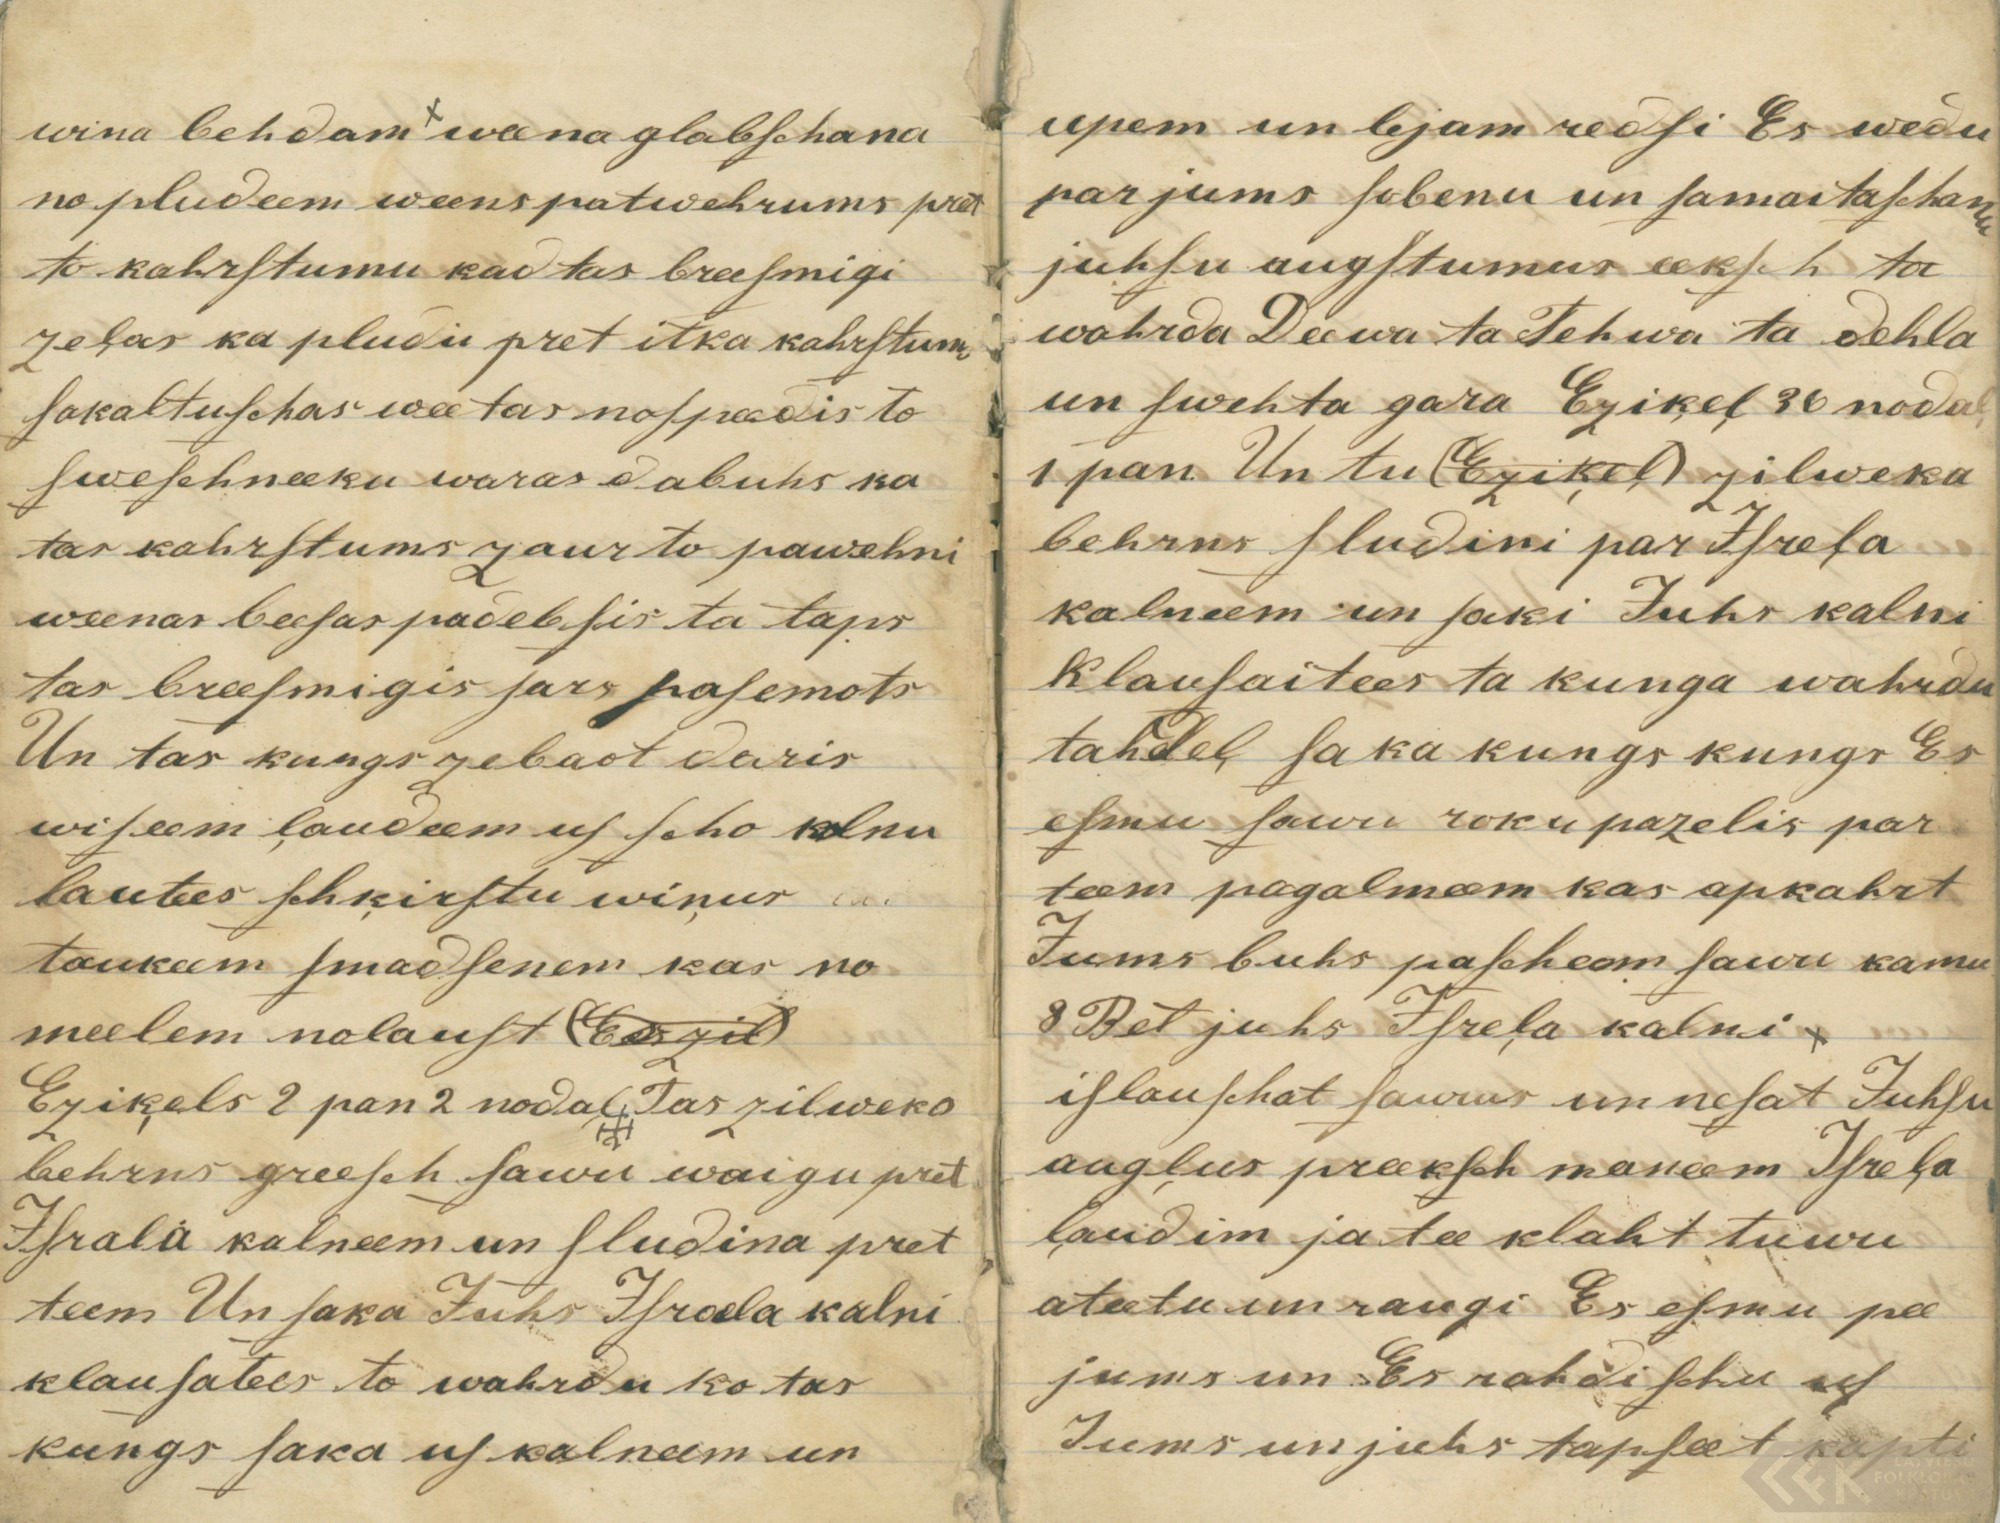 wina behdam x weena glabſchana
no pludeem weens patwehrums pret
to kahrſtumu kad tas breeſmigi
zeļas ka pludu pret itka kahrſtum
ſakaltuſchas weetas noſpeedis to
ſweſchneeku waras dabuhs ka
tas kahrſtums zaur to pawehni
weenas beeſas padebſis ta taps
tas breeſmigis ſars paſemots
Un tas kungs zebaot daris
wiſeem ļaudeem uſ ſcho kalnu
lautees ſchķirſtu wiņus
taukeem ſmadſenem kas no
meelem nolauſt (Eeszil)
Ezikels 2 pan 2 nodaļ Tas zilweka
behrns greeſch ſawu waigu pret
Iſrala kalneem un ſludina pret
teem Un ſaka Juhs Iſraela kalni
klauſatees to wahrdu ko tas
kungs ſaka uſ kalneem un
upem un lejam redſi Es wedu
par jums ſobenu un ſamaitaſchanu
juhſu augſtumus eekſch ta
wahrda Deewa ta Tehwa ta dehla
un ſwehta gara Ezikeļ 36 nodaļ
1 pan. Un tu (Ezikeļ) zilweka
behrns ſludini par Iſreļa
kalneem un ſaki Juhs kalni
Klauſaitees ta kunga wahrdu
tahdeļ ſaka kungs kungs Es
eſmu ſawu roku pazelis par
teem pagalmeem kas apkahrt
Jums buhs paſcheem ſawu kamu
8 Bet juhs Iſreļa kalni x
iſlauſchat ſawus un neſat Juhſu
augļus preekſch maneem Iſreļa
ļaudim ja tee klaht tuwu
ateetu un raugi Es eſmu pee
jums un Es rahdiſchu uſ
Jums un juhs tapſeet kapti